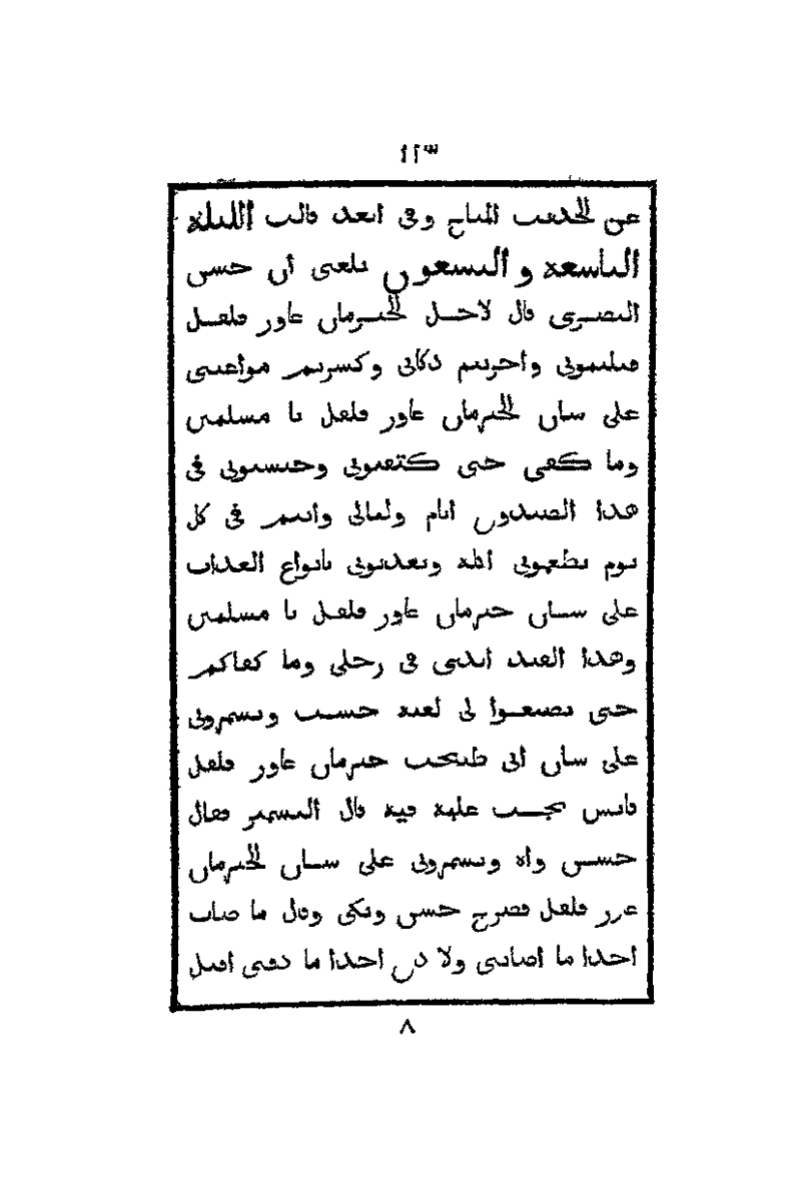 ١١٣
عن الحديث المباح وفي الغد قالت الليلة
التاسعة والتسعون بلغني أن حسن
البصري قال لاجل الخبرمان عاور فلفل
وأخربتم دكاني وكسرتم مواعيني
على سان الخبرمان عاور فلفل يا مسلمين
وما كفى حتى كتفتوني وحبستوني في
هذا الصندوق ايام وليالي وانتم في كل
يوم تطعموني المه وتعذبوني بانواع العذاب
على سان حبرمان عاور فلفل يا مسلمين
وهذا القيد الذي في رجلي وما كفاكم
حتى تصنعوا لي لعبة خشب وتسمروني
على سان أني طبخت حبرمان عاور فلفل
فايس يجب عليه فيه قال التسمير فقال
حسن واه وتسمروني على سان الخبرمان
عرر فلفل فصرخ حسن وبكى وقال ما صاب
احدا ما اصابني ولا دس احدا ما دقني اقتل
٨